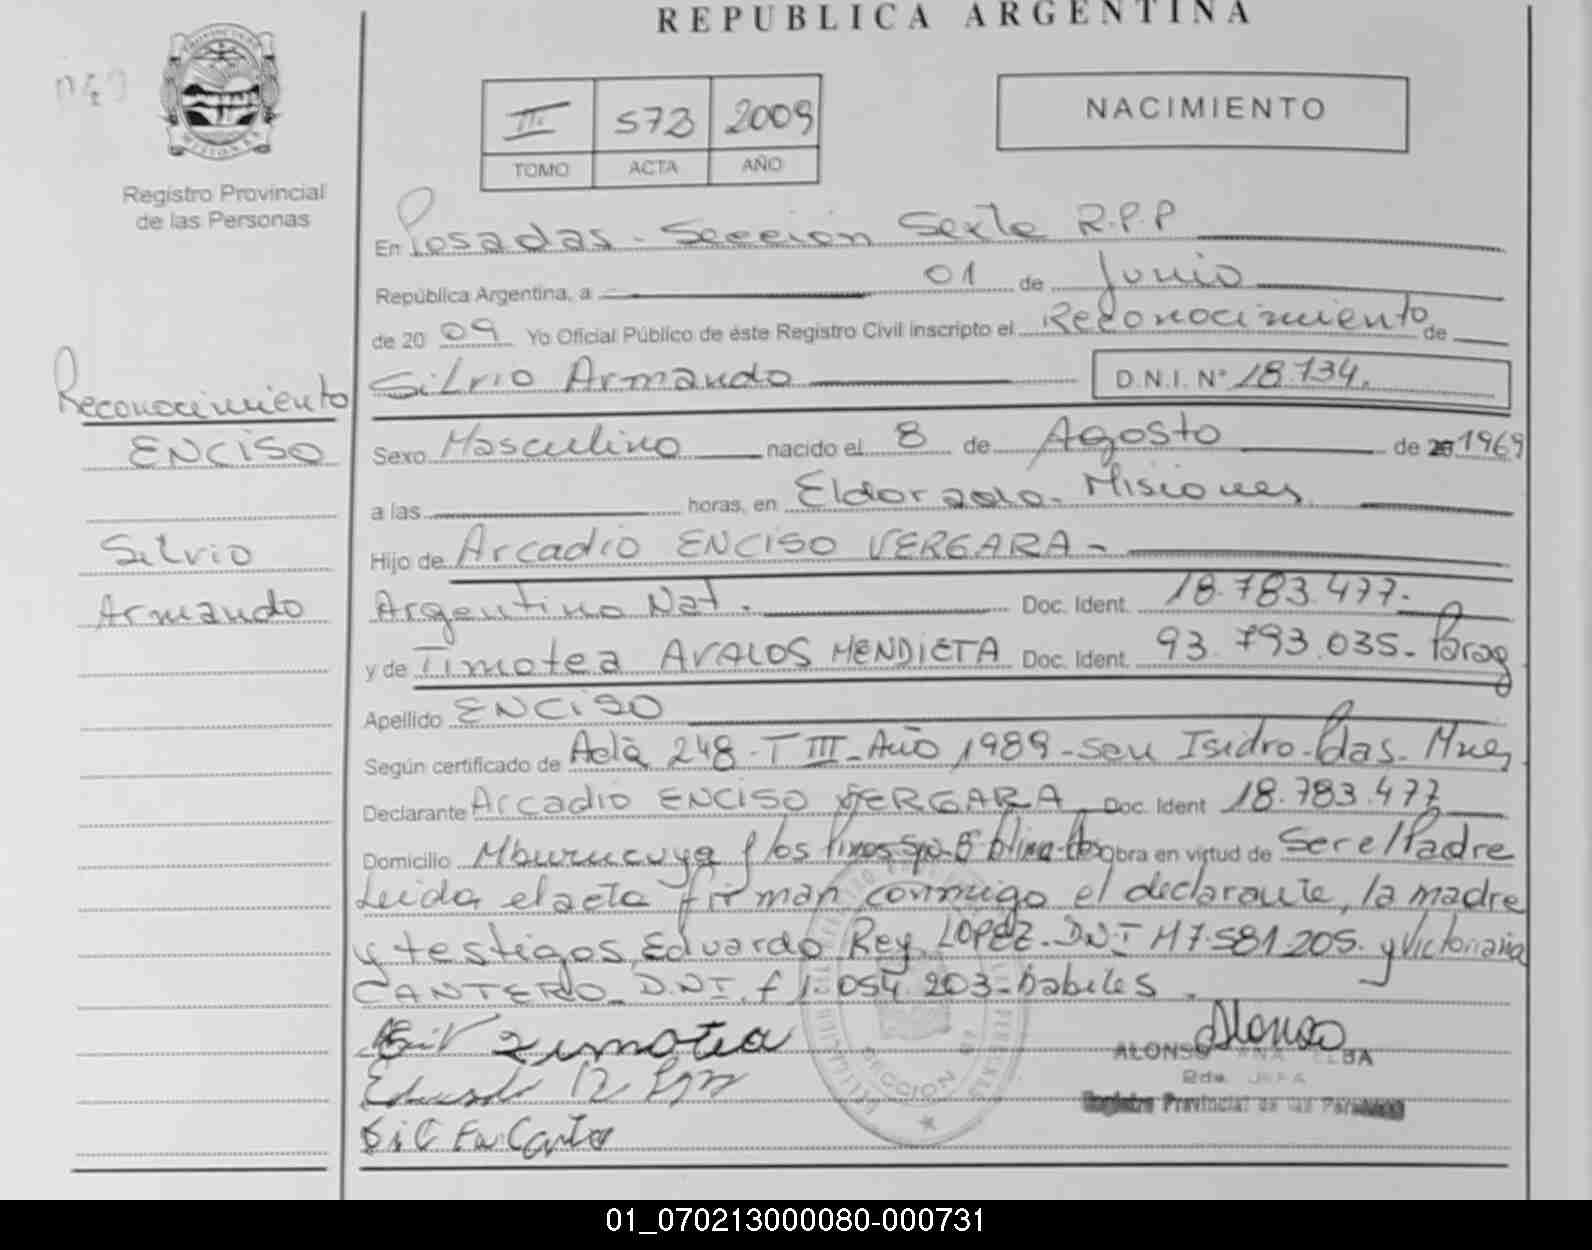 REPUBLICA ARGENTINA
PROVINCIA DE
MISIONES
Registro Provincial
de las Personas
III 573 2009
TOMO ACTA AÑO
NACIMIENTO
En Posadas - Sección Sexta R.P.P
República Argentina, a 01 de Junio
de 20 09 Yo Oficial Público de éste Registro Civil inscripto el Reconocimiento de
Silvio Armando D.N.I. Nº 18.734.
Reconocimiento
ENCISO
Silvio
Armando
Sexo Masculino nacido el 8 de Agosto de 1969
a las horas, en Eldorado - Misiones
Hijo de Arcadio ENCISO VERGARA -
Argentino Nat. Doc. Ident. 18.783.477.
y de Timotea AVALOS MENDIETA Doc. Ident. 93.793.035 - Parag
Apellido ENCISO
Según certificado de Acta 248 - T III - Año 1989 - San Isidro - Pdas - Mnes
Declarante Arcadio ENCISO VERGARA Doc. Ident 18.783.477
Domicilio Mburucuya y los Pinos Obra en virtud de Ser el Padre
Leida el acta firman conmigo el declarante, la madre
y testigos Eduardo Rey LOPEZ - DNI M 7.581.205. y Victoriana
CANTERO - DNI. f 1.054.203 - habiles.
Timotea
Alonso
ALONSO ANA ELBA
Registro Provincial de las Personas
SECCION
01_070213000080-000731